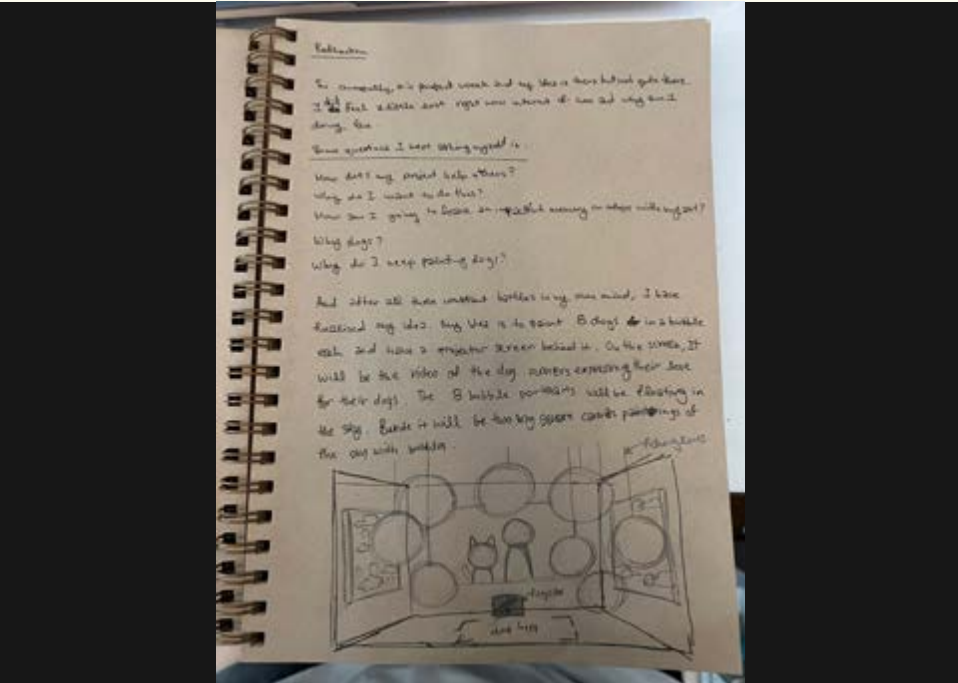 Reflection
So currently, it is project week and my idea is there but not quite there.
I did feel a little lost right now interest of how and why am I
doing this.
Some questions I kept asking myself is..
How does my project help others?
Why do I want to do this?
How am I going to create an impactful memory or adopt with my art?
Why dogs?
Why do I keep painting dogs?
And after all these constant battles in my own mind, I have
finalised my idea. My idea is to paint 8 dogs in a bubble
each and have a projector screen behind it. On the screen, It
will be the video of the dog owners expressing their love
for their dogs. The 8 bubble portraits will be floating in
the sky. Beside it will be two big square canvas paintings of
the sky with bubbles.
Projector
stand here